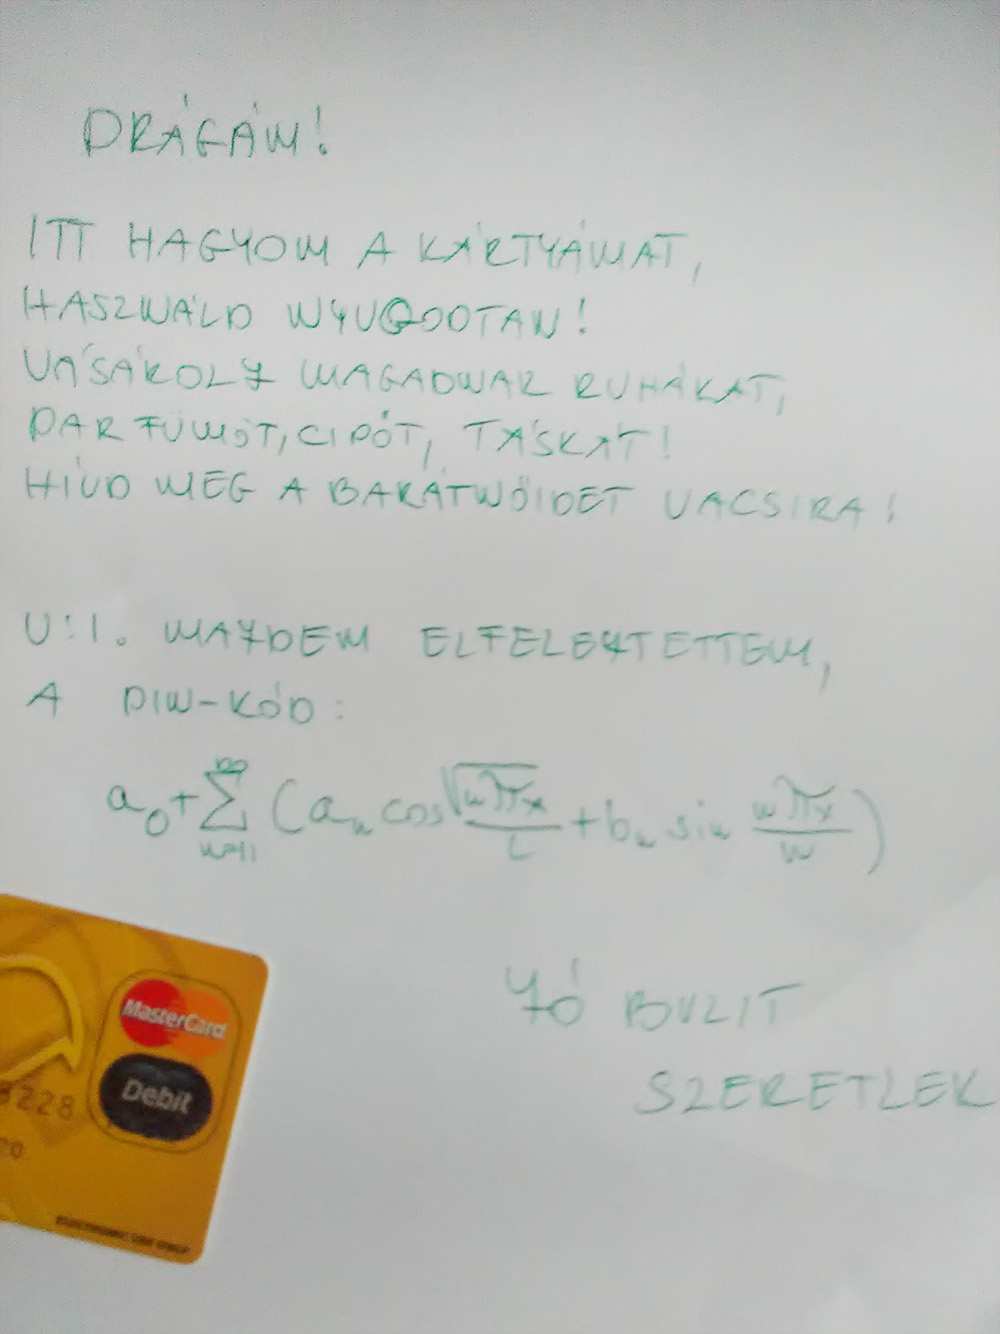 DRÁGÁM!
ITT HAGYOM A KÁRTYÁMAT,
HASZNÁLD NYUGODTAN!
VÁSÁROLJ MAGADNAK RUHÁKAT,
PARFÜMÖT, CIPŐT, TÁSKÁT!
HÍVD MEG A BARÁTNŐIDET VACSIRA!
U:I. MAJDEM ELFELEJTETTEM,
A PIN-KÓD:
a₀+∑_{n=1}^{∞} (aₙ cos √(nπx)/L + bₙ sin nπx/N)
JÓ BULIT
SZERETLEK
MasterCard
Debit
3228
20